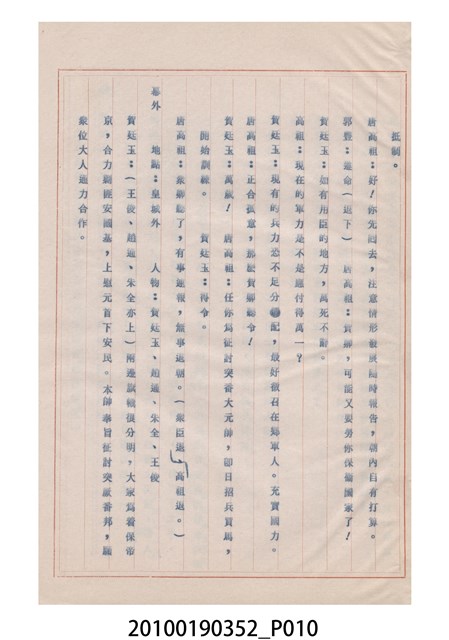 抵制。
唐高祖：好！你先回去，注意情形發展隨時報告，朝內自有打算。
郭豐：遵命（退下）　唐高祖：賀卿，可能又要勞你保衞國家了！
賀廷玉：如有用臣的地方，萬死不辭。
高祖：現在的軍力是不是應付得萬一？
賀廷玉：現有的兵力恐不足分配，最好徵召在鄉軍人。充實國力。
唐高祖：正合孤意，那麽賀卿聽令！
賀廷玉：萬歲！　唐高祖：任你為征討突番大元帥，即日招兵買馬，
開始訓練。　賀廷玉：得令。
唐高祖：衆卿聽了，有事速報，無事退朝。（衆臣退，高祖退。）
幕外　地點：皇城外　人物：賀廷玉、趙通、朱全、王俊
賀廷玉：（王俊、趙通、朱全亦上）兩邊旗幟很分明，大家為着保帝
京，合力鞏固安國基，上慰元首下安民。本帥奉旨征討突厥番邦，願
衆位大人通力合作。
20100190352_P010